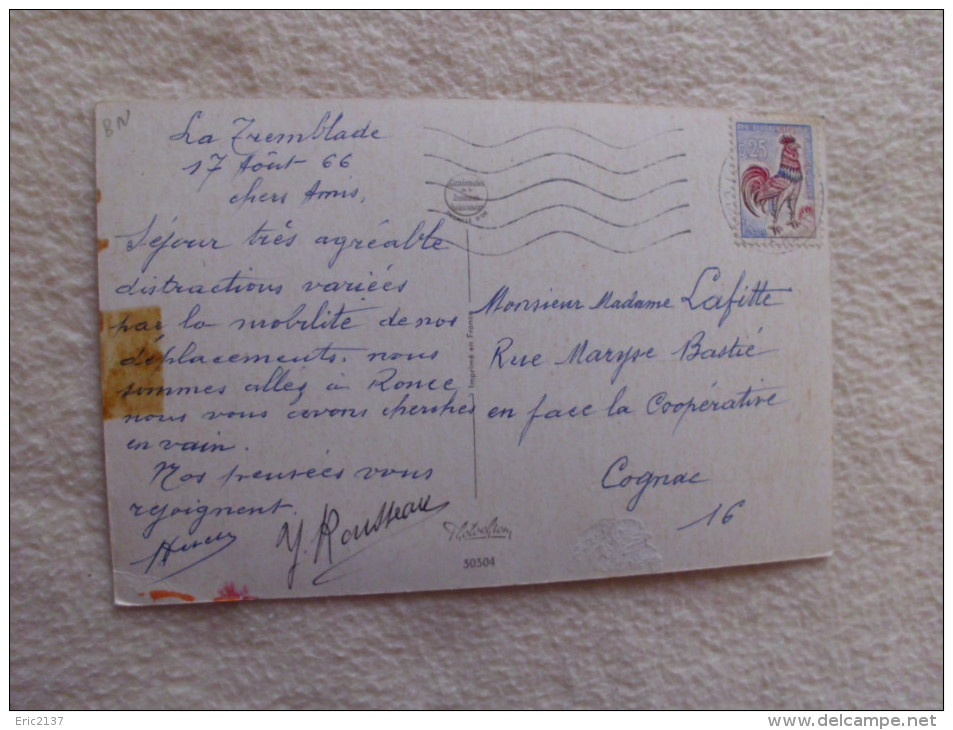 BN
La Tremblade
17 Août 66
chers Amis,
Séjour très agréable
distractions variées
par la mobilité de nos
déplacements. nous
sommes allés à Ronce
nous vous avons cherchés
en vain.
Nos pensées vous
rejoignent.
Y. Rousseau
Imprimé en France
30304
0,25
Monsieur Madame Lafitte
Rue Maryse Bastié
en face la Coopérative
Cognac
16
Eric2137
www.delcampe.net